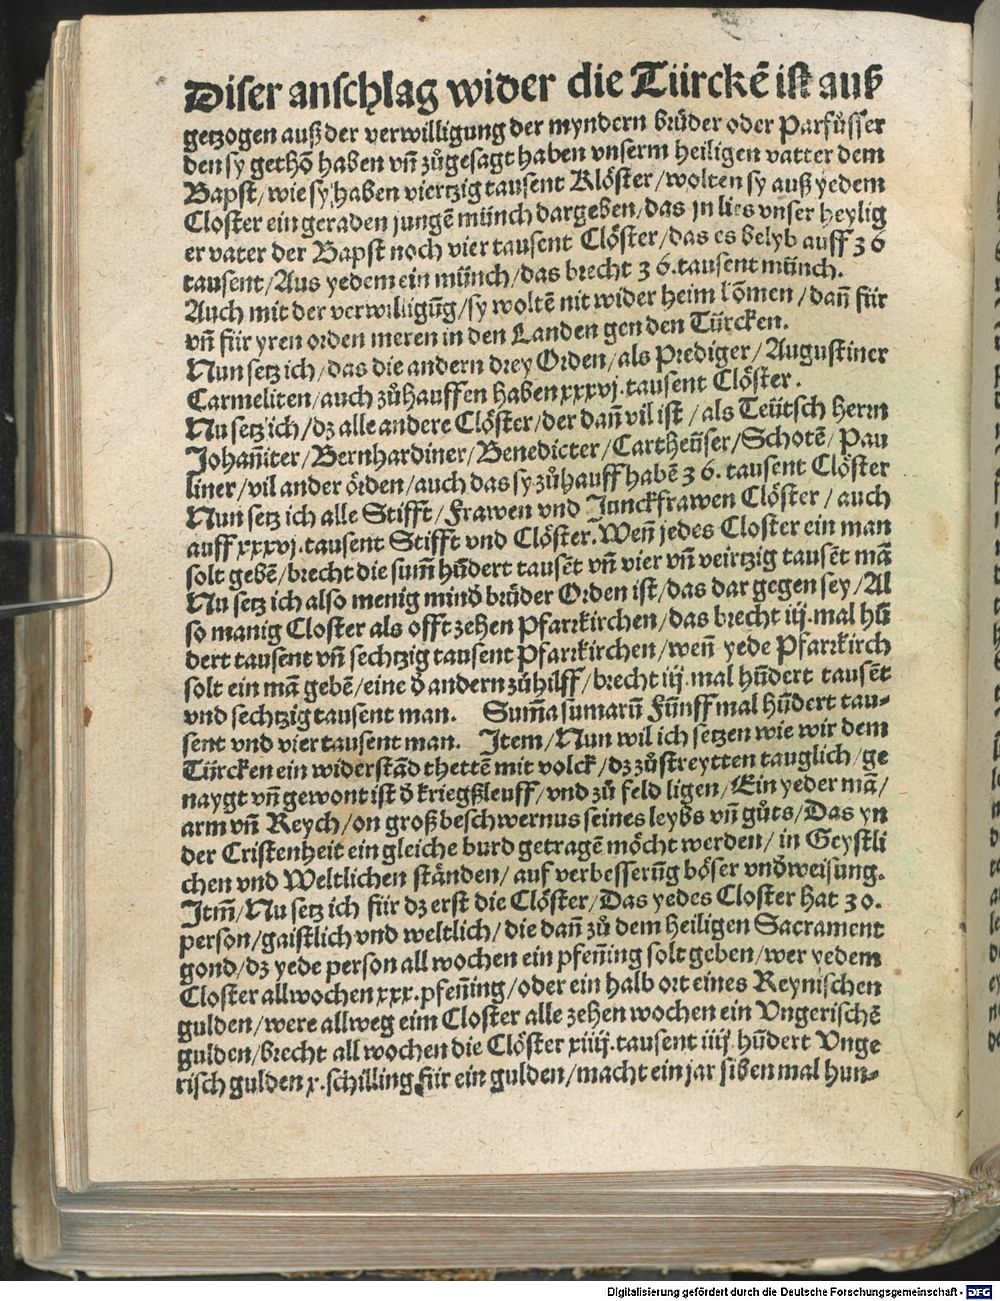 Diser anschlag wider die Türckē ist auß
getzogen auß der verwilligung der myndern brüder oder Parfůsser
den sy gethō haben vñ zůgesagt haben vnserm heiligen vatter dem
Bapst / wie sy haben viertzig tausent Klöster / wolten sy auß yedem
Closter ein geraden jungē münch dargeben / das jn lies vnser heylig
er vater der Bapst noch vier tausent Clöster / das es belyb auff 36
tausent / Aus yedem ein münch / das brecht 36. tausent münch.
Auch mit der verwilligūg / sy woltē nit wider heim kōmen / dañ für
vñ für yren orden meren in den Landen gen den Türcken.
Nun setz ich / das die andern drey Orden / als Prediger / Augustiner
Carmeliten / auch zůhauffen haben xxxvj. tausent Clöster.
Nu setz ich / dz alle andere Clöster / der dañ vil ist / als Teütsch herrn
Johañiter / Bernhardiner / Benedicter / Cartheüser / Schotē / Pau
liner / vil ander örden / auch das sy zůhauff habē 36. tausent Clöster
Nun setz ich alle Stifft / Frawen vnd Junckfrawen Clöster / auch
auff xxxvj. tausent Stifft vnd Clöster. Weñ jedes Closter ein man
solt gebē / brecht die sum̄ hūdert tausēt vñ vier vñ veirtzig tausēt mā
Nu setz ich also menig mind' brüder Orden ist / das dar gegen sey / Al
so manig Closter als offt zehen Pfarrkirchen / das brecht iij. mal hū
dert tausent vñ sechtzig tausent Pfarrkirchen / weñ yede Pfarrkirch
solt ein mā gebē / eine d' andern zůhilff / brecht iij. mal hūdert tausēt
vnd sechtzig tausent man. Sum̄a sumarū Fünff mal hūdert tau-
sent vnd vier tausent man. Item / Nun wil ich setzen wie wir dem
Türcken ein widerstād thettē mit volck / dz zů streytten tauglich / ge
naygt vñ gewont ist d' kriegßleuff / vnd zů feld ligen / Ein yeder mā /
arm vñ Reych / on groß beschwernus seines leybs vñ gůts / Das yn
der Cristenheit ein gleiche burd getragē möcht werden / in Geystli
chen vnd Weltlichen ständen / auf verbesserūg böser vnd'weisung.
Itm̄ / Nu setz ich für dz erst die Clöster / Das yedes Closter hat 30.
person / gaistlich vnd weltlich / die dañ zů dem heiligen Sacrament
gond / dz yede person all wochen ein pfeñing solt geben / wer yedem
Closter all wochen xxx. pfeñing / oder ein halb ort eines Reynischen
gulden / were allweg eim Closter alle zehen wochen ein Vngerischē
gulden / brecht all wochen die Clöster xiiij. tausent iiij hūdert Vnge
risch gulden x. schilling für ein gulden / macht ein jar siben mal hun-
Digitalisierung gefördert durch die Deutsche Forschungsgemeinschaft - DFG